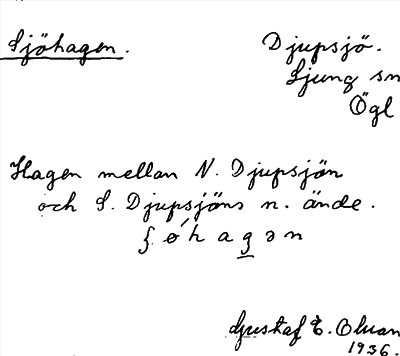 Sjöhagen.
Djupsjö.
Ljung sn
Ögl
Hagen mellan N. Djupsjön
och S. Djupsjöns n. ände.
Gustaf E. Olsson
1936.